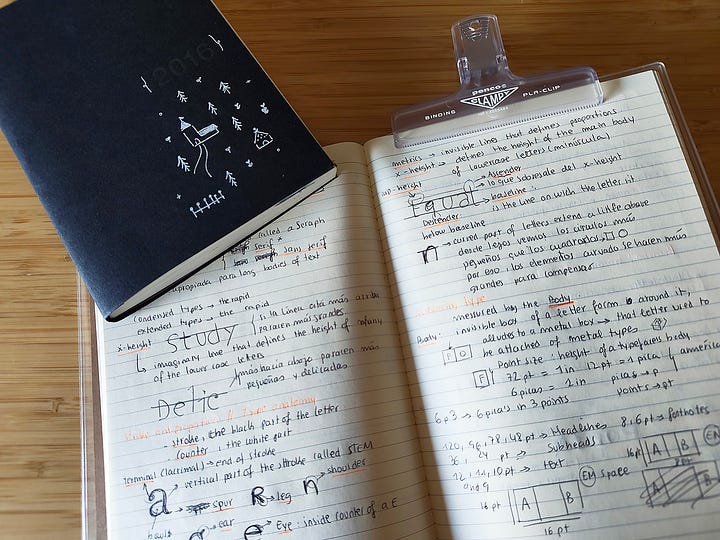 2016
penco
CLAMPY
BINDING
PLA-CLIP
called a Seraph
serif
sans serif
para long bodies of text
condensed types → the rapid
extended types → the rapid
x-height
study
si la línea está más arriba
pararen más grandes
imaginary line that defines the height of
of the lower case letters
más hacia abajo pararen más
pequeñas y delicadas
Delic
stroke, the black part of the letter
counter, the white part
terminal (lacrimal) → end of stroke
vertical part of the stroke called STEM
a → spur R → leg n → shoulder
ear
e Eye: inside counter of a E
metrics → invisible lines that defines proportions
x-height → defines the height of the main body
of lowercase letters (minúscula)
cap-height
Ascender
lo que sobresale del x-height
Equal
baseline:
is the line on wich the letter sit
Descender
below baseline
n → curved part of letters extend a little above
desde lejos vemos los círculos más
pequeños que los cuadrados, □ O
por eso, los elementos curvados se haren más
grandes para compensar
measured by the Body
Body: invisible box of a letter form around it,
alludes to a metal box → that letter used to
be attached of metal types
F O
Point size: height of a typefaces body
F
72pt = 1 in 12pt = 1 pica
6 picas = 1 in picas → p
points → pt
6p3 → 6 picas in 3 points
120, 96, 78, 48 pt → Headlines 8, 6 pt → footnotes
36, 24 pt → Subheads
12, 11, 10 pt → text
and 9
EM space
16 pt A B
16 pt
16p A B
EN
A B